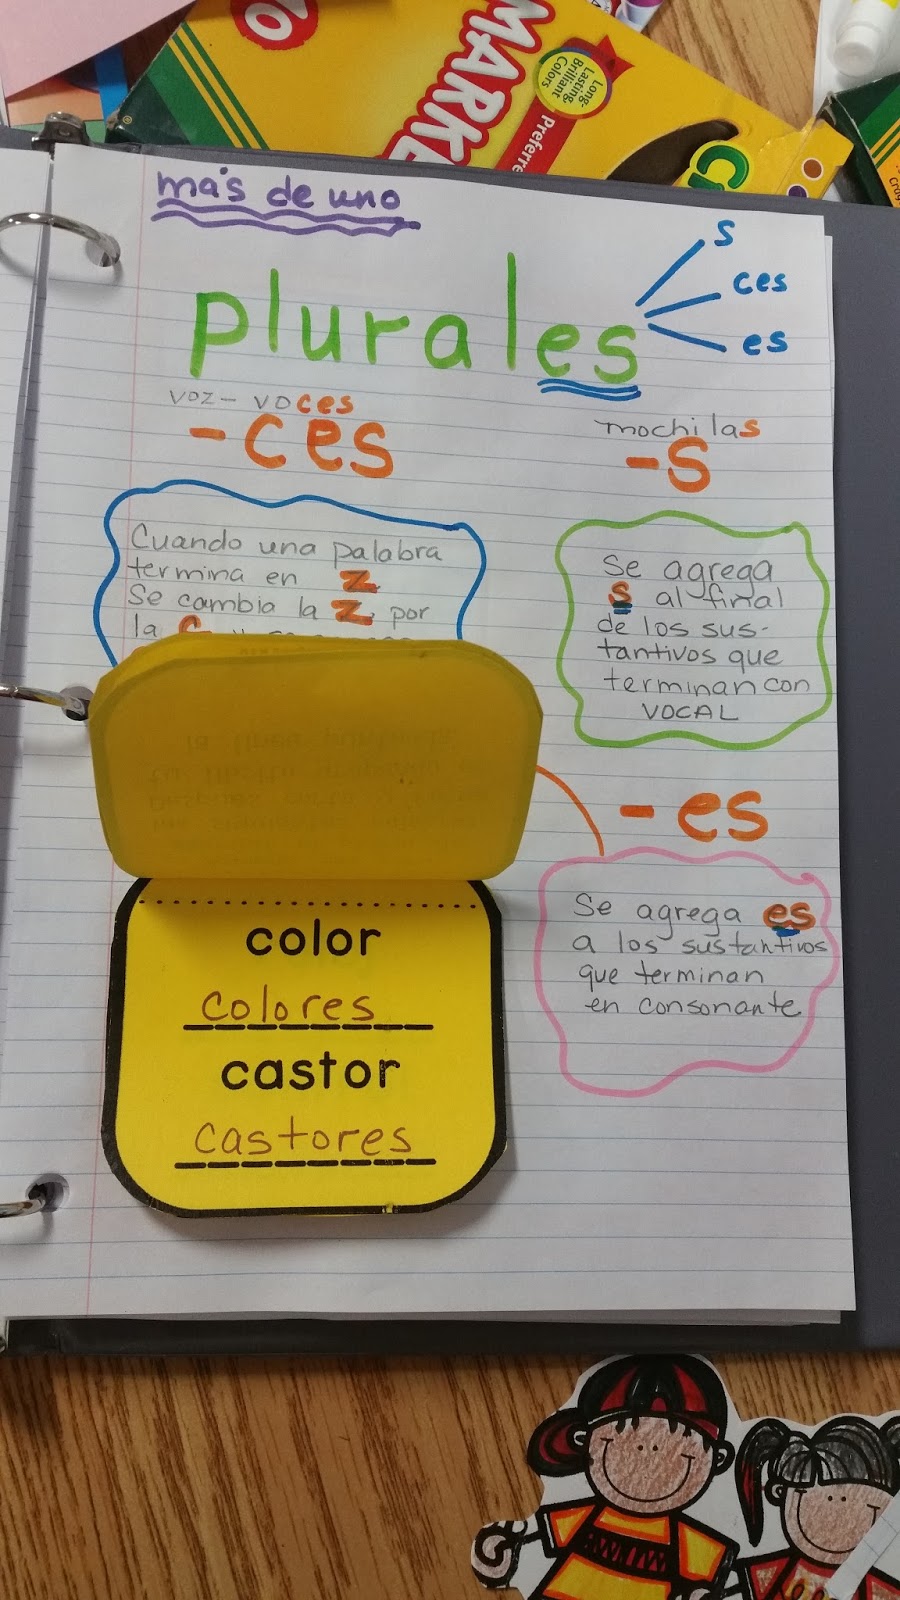 MARKE
Long-
Lasting,
Brilliant
Colors
Preferre
más de uno
plurales
s
ces
es
voz - voces
-ces
Cuando una palabra
termina en z
Se cambia la z por
la c
mochilas
-s
Se agrega
s al final
de los sus-
tantivos que
terminan con
VOCAL
-es
Se agrega es
a los sustantivos
que terminan
en consonante
color
colores
castor
castores